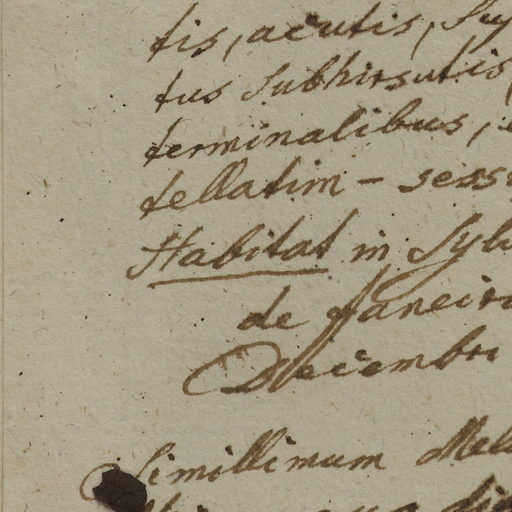 tis, acutis, Sup
tus Subhirsutis,
terminalibus,
tellatim - sess
Habitat in Sylv
de Janeiro
Decembri
Simillimum Mela